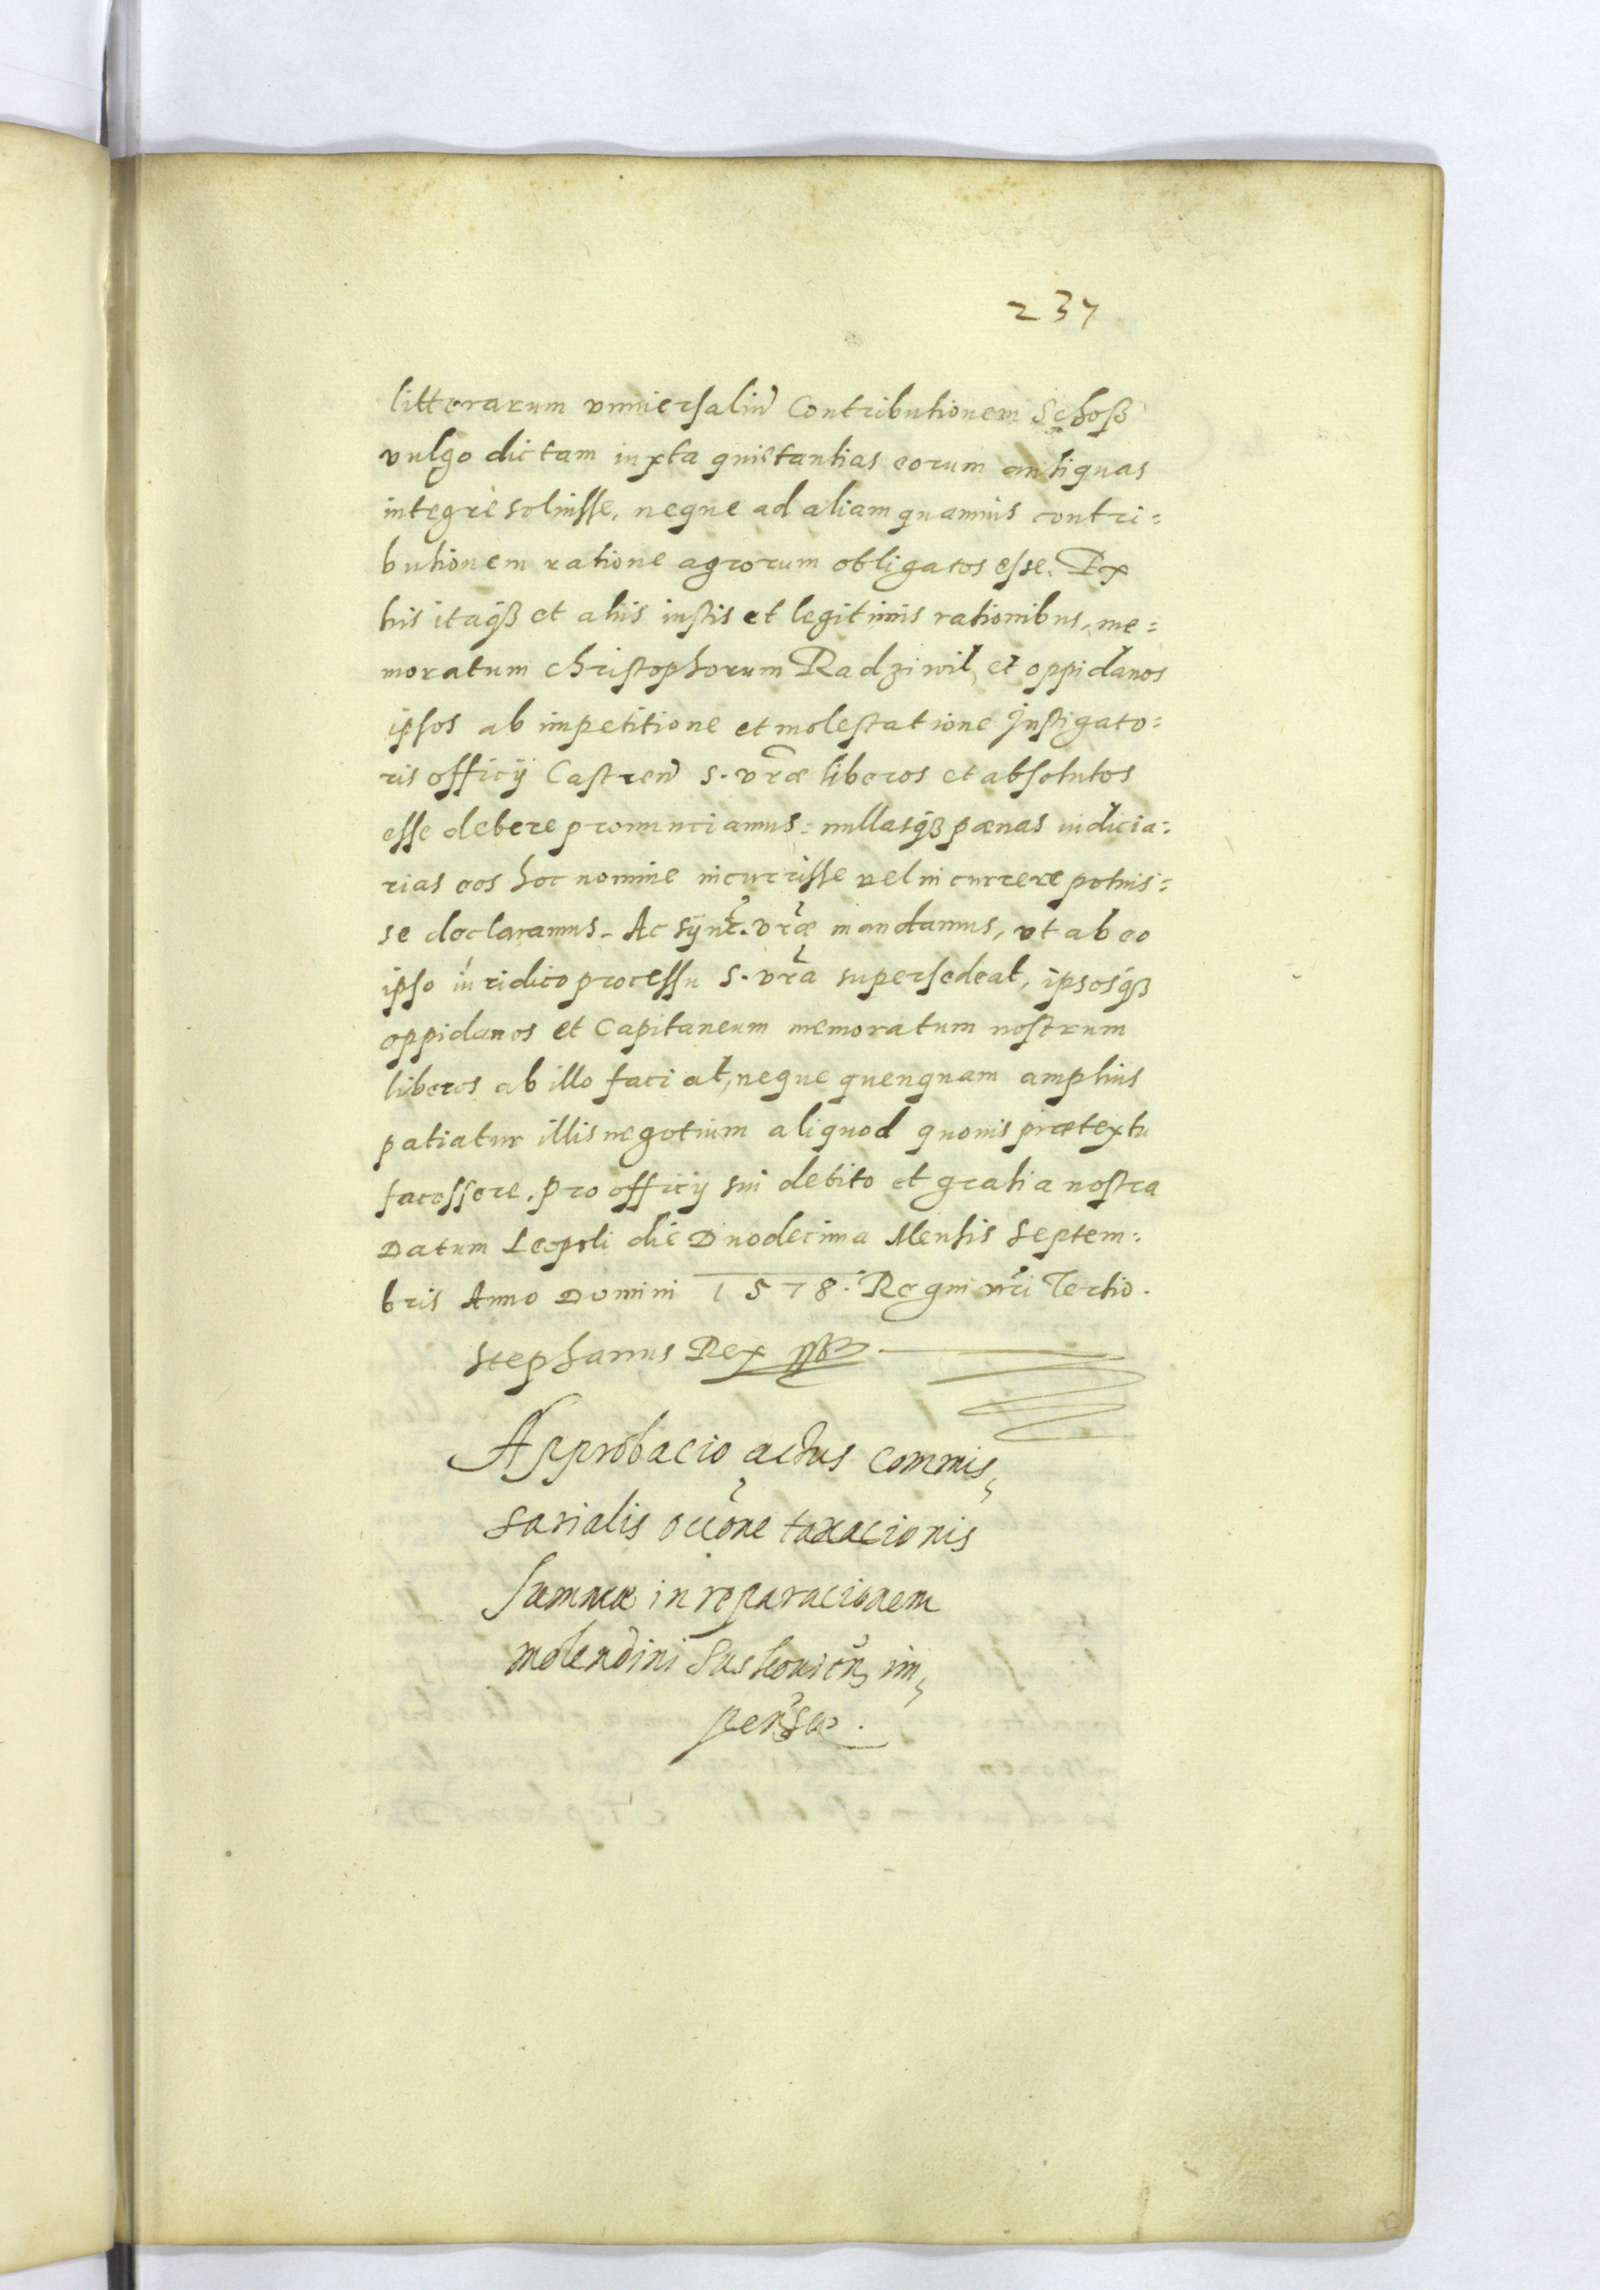 237
litterarum vniuersaliũ Contributionem Schoſs
vulgo dictam iuxta quietantias eorum antiquas
integrè soluisse, neque ad aliam quamuis contri=
butionem ratione agrorum obligatos esse. Ex
his itaq₃ et aliis iustis et legitimis rationibus, me=
moratum Christophorum Radziwil et oppidanos
ipsos ab impetitione et molestatione Instigato=
ris officij Castreñ S. vr̃æ liberos et absolutos
esse debere pronunciamus: nullasq₃ pœnas iudicia=
rias eos hoc nomine incurrisse uel incurrere potuis=
se declaramus. Ac vr̃æ mandamus, vt ab eo
ipso iuridico processu S. vr̃a supersedeat, ipsosq₃
oppidanos et Capitaneum memoratum nostrum
liberos ab illo faciat, neque quenquam amplius
patiatur illis negotium aliquod quouis prætextu
facessere. Pro officij sui debito et gratia nostra
Datum Leopoli die Duodecima Mensis Septem=
bris Anno Domini 1578. Regni nr̃i Tertio.
Stephanus Rex
Approbacio actus commis,
sarialis occõne taxacionis
summæ in reparacionem
molendini im,
pensæ.